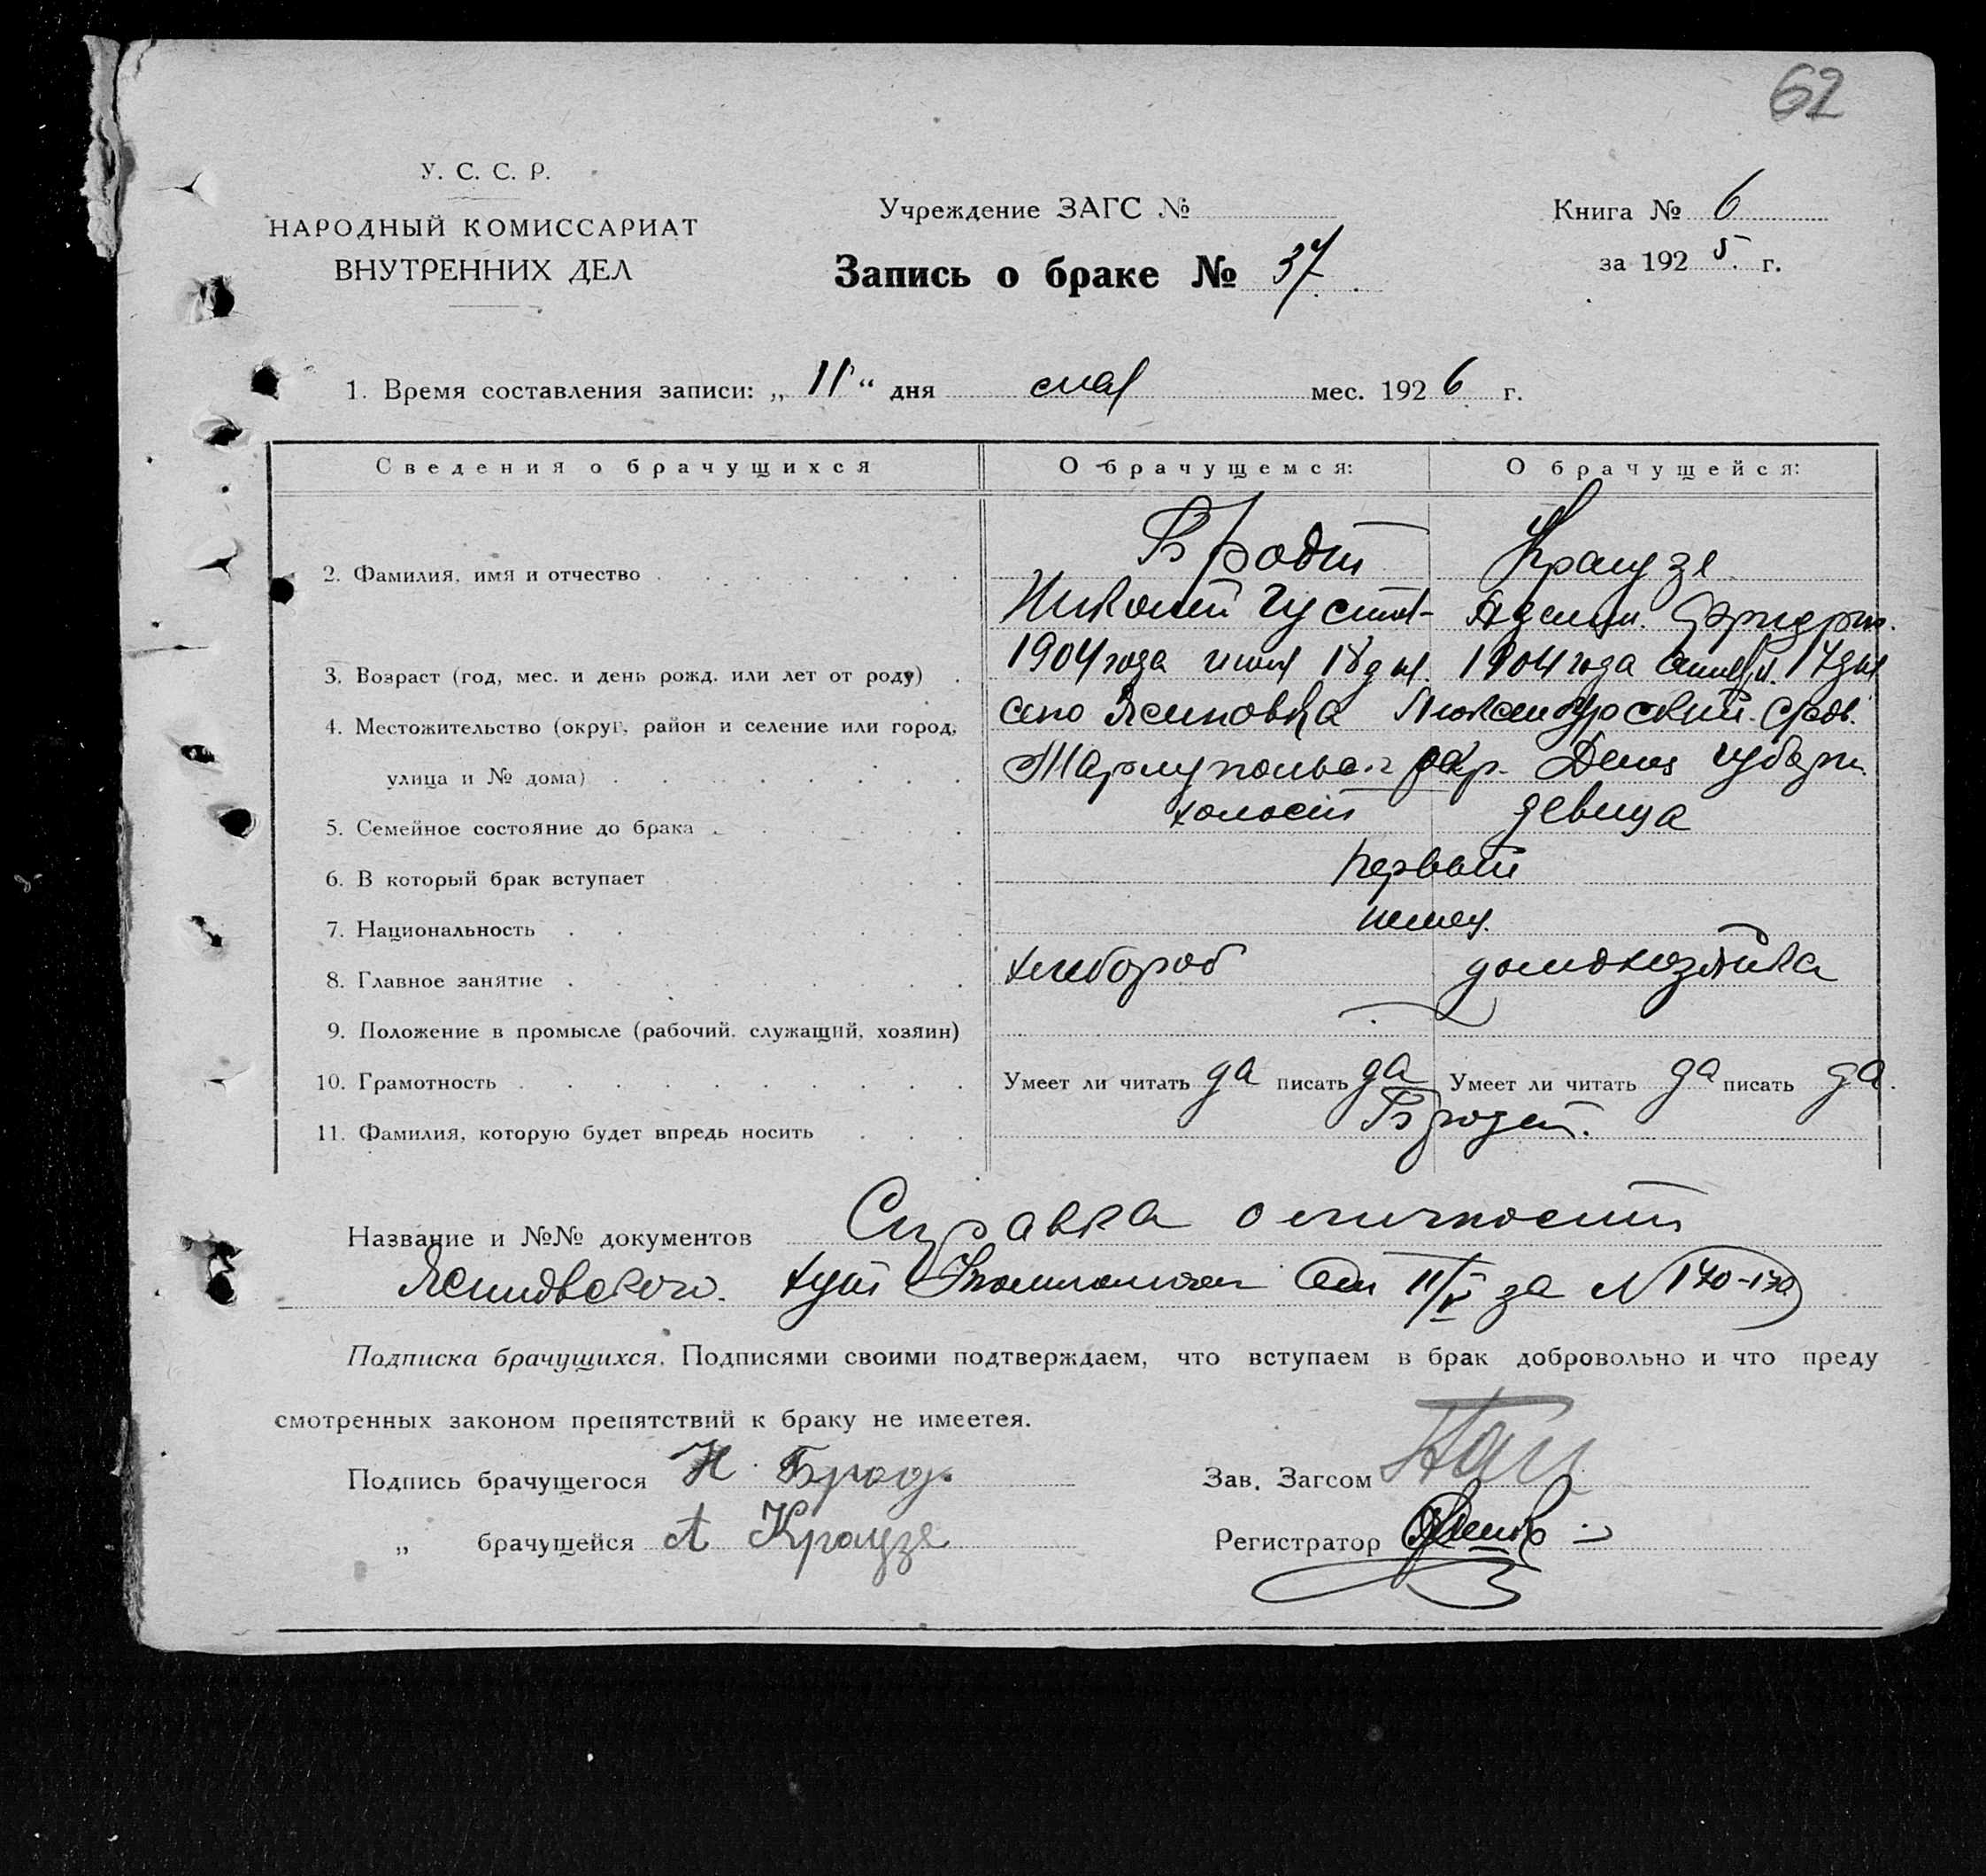 62
У. С. С. Р.
НАРОДНЫЙ КОМИССАРИАТ
ВНУТРЕННИХ ДЕЛ
Учреждение ЗАГС №
Запись о браке № 37
Книга № 6
за 1925 г.
1. Время составления записи: „ 11 “ дня мая мес. 1926 г.
Сведения о брачущихся О брачущемся: О брачущейся:
2. Фамилия, имя и отчество Бродт Краузе
Николай Густав-
3. Возраст (год, мес. и день рожд. или лет от роду) 1904 года 18 дня. 1904 года 17 дня
4. Местожительство (округ, район и селение или город, село Ясиновка
улица и № дома) Мариупольск. окр. губерн.
5. Семейное состояние до брака холост девица
6. В который брак вступает первый
7. Национальность немец.
8. Главное занятие хлебороб домохозяйка
9. Положение в промысле (рабочий, служащий, хозяин)
10. Грамотность Умеет ли читать да писать да Умеет ли читать да писать да.
11. Фамилия, которую будет впредь носить Бродт.
Название и №№ документов Справка о личности
Ясиновского. от 11/V за N 170-170
Подписка брачущихся. Подписями своими подтверждаем, что вступаем в брак добровольно и что преду
смотренных законом препятствий к браку не имеетея.
Подпись брачущегося Н. Брод.
Зав. Загсом
„ брачущейся А Краузе
Регистратор